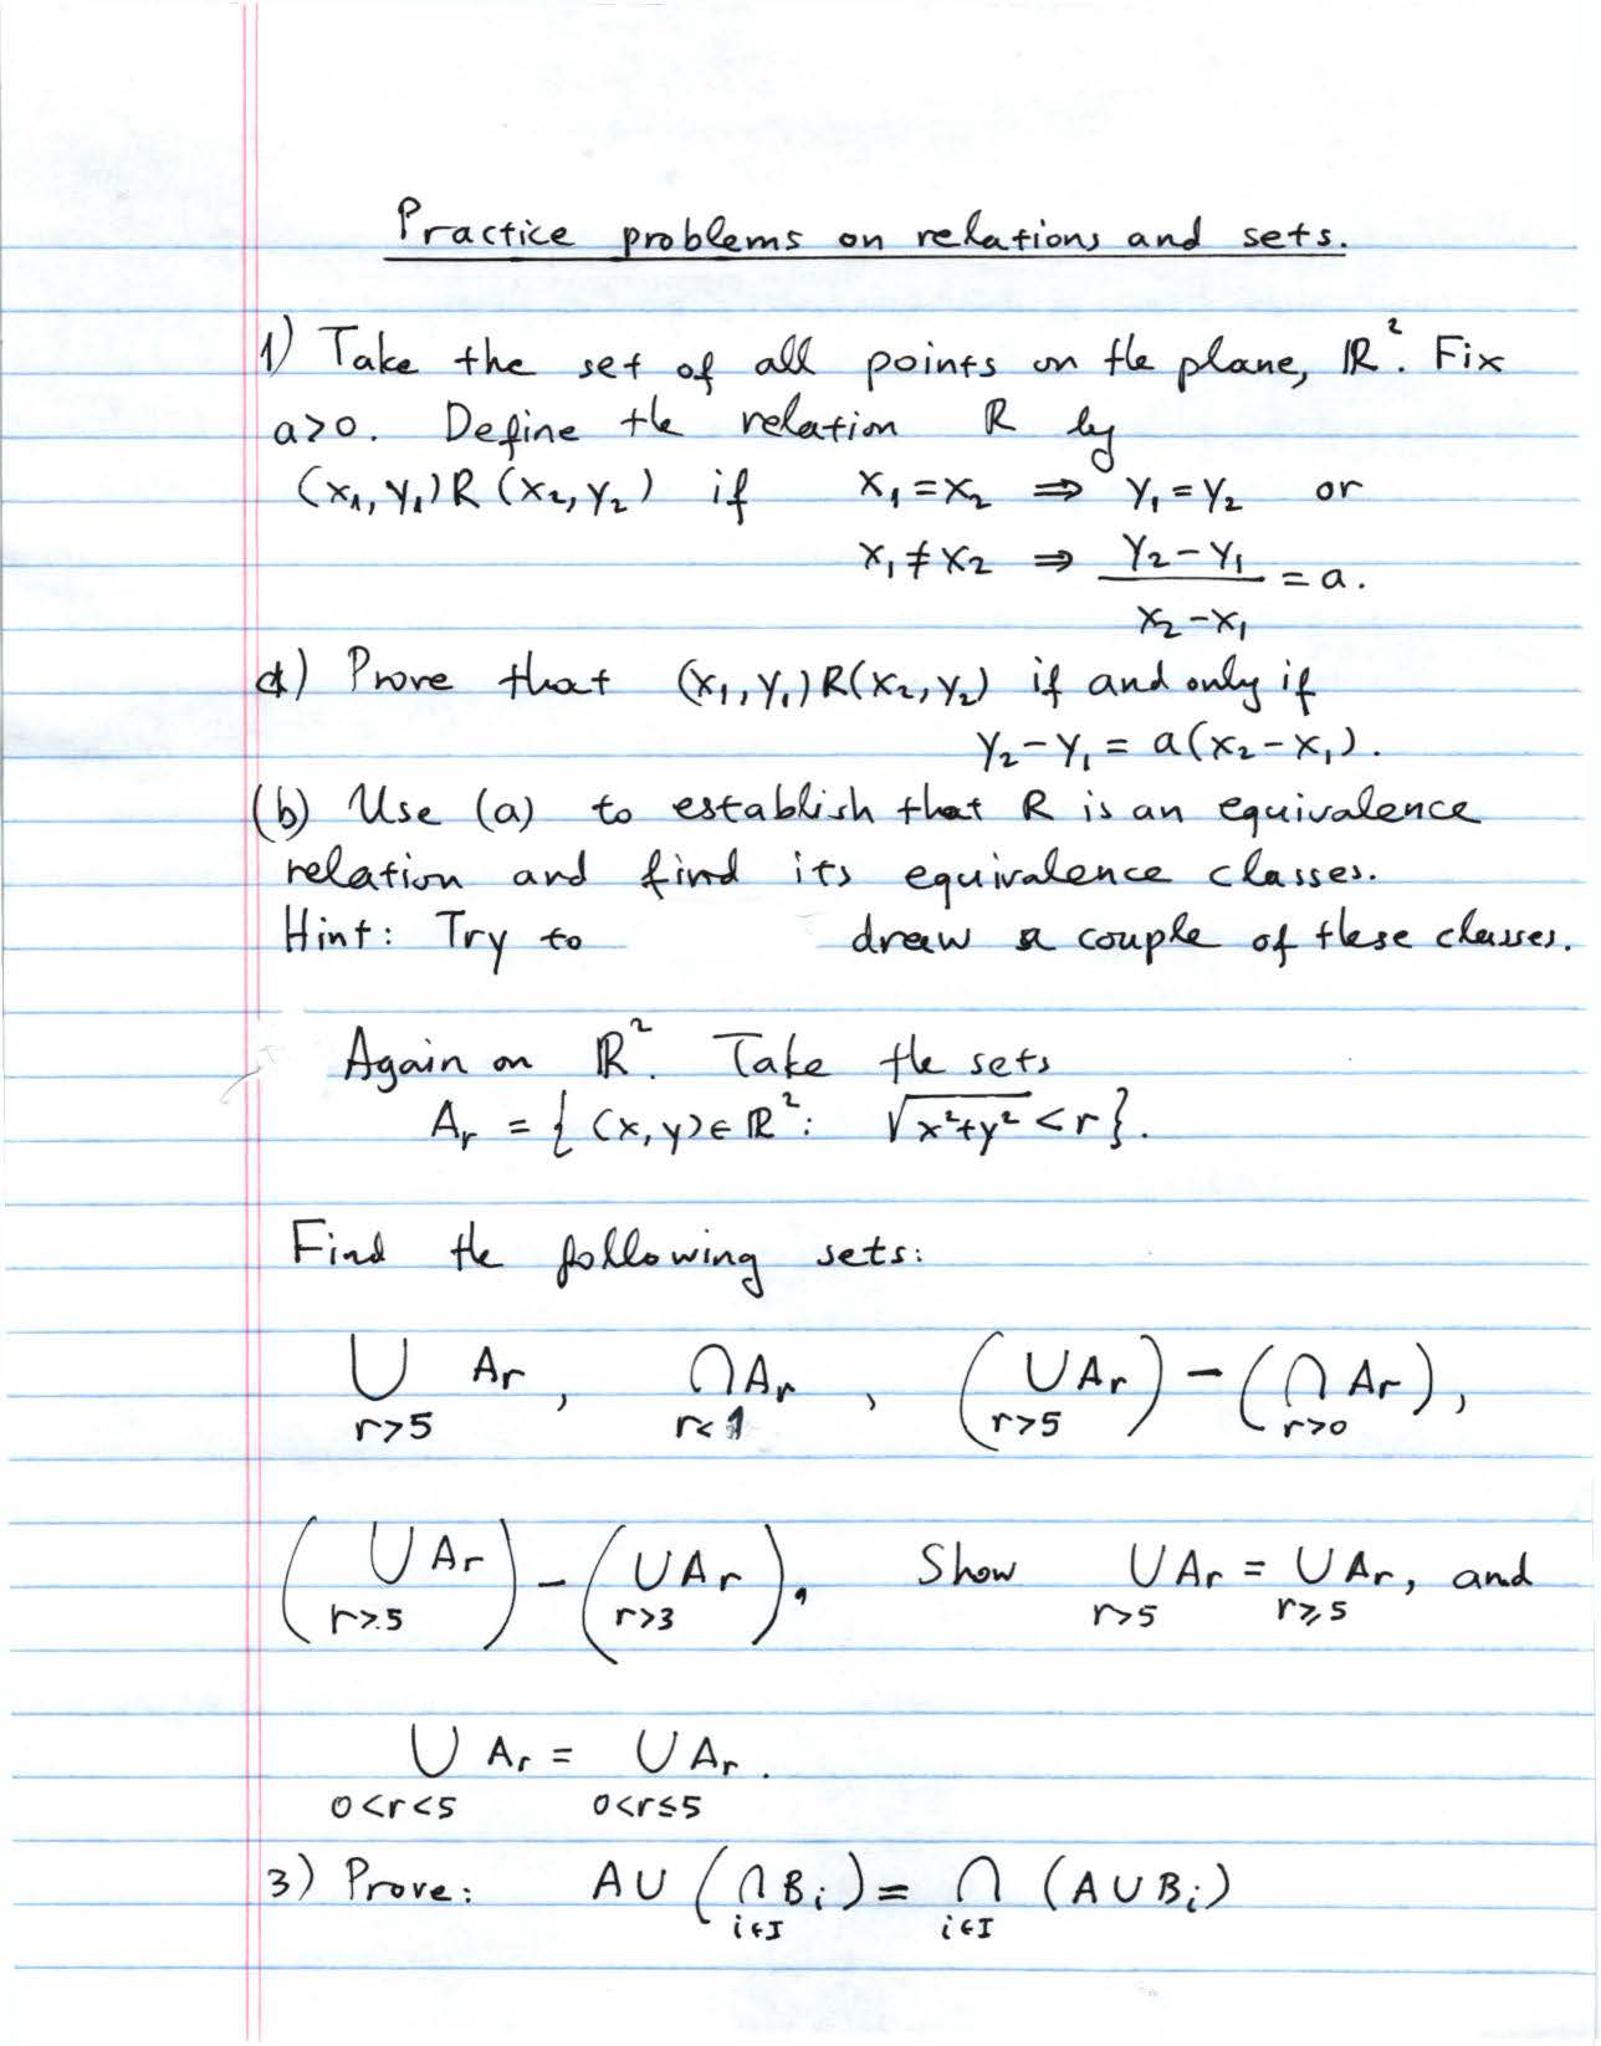 Practice problems on relations and sets.
1) Take the set of all points on the plane, ℝ². Fix
a>0. Define the relation R by
(x₁, y₁) R (x₂, y₂) if x₁ = x₂ ⇒ y₁ = y₂ or
x₁ ≠ x₂ ⇒ (y₂ - y₁)/(x₂ - x₁) = a.
a) Prove that (x₁, y₁) R (x₂, y₂) if and only if
y₂ - y₁ = a(x₂ - x₁).
(b) Use (a) to establish that R is an equivalence
relation and find its equivalence classes.
Hint: Try to draw a couple of these classes.
Again on ℝ². Take the sets
Aᵣ = { (x, y) ∈ ℝ² : √(x²+y²) < r }.
Find the following sets:
⋃_{r>5} Aᵣ, ⋂_{r<1} Aᵣ, (⋃_{r>5} Aᵣ) - (⋂_{r>0} Aᵣ),
(⋃_{r>5} Aᵣ) - (⋃_{r>3} Aᵣ). Show ⋃_{r>5} Aᵣ = ⋃_{r≥5} Aᵣ, and
⋃_{0<r<5} Aᵣ = ⋃_{0<r≤5} Aᵣ.
3) Prove: A ∪ (⋂_{i∈I} Bᵢ) = ⋂_{i∈I} (A ∪ Bᵢ)